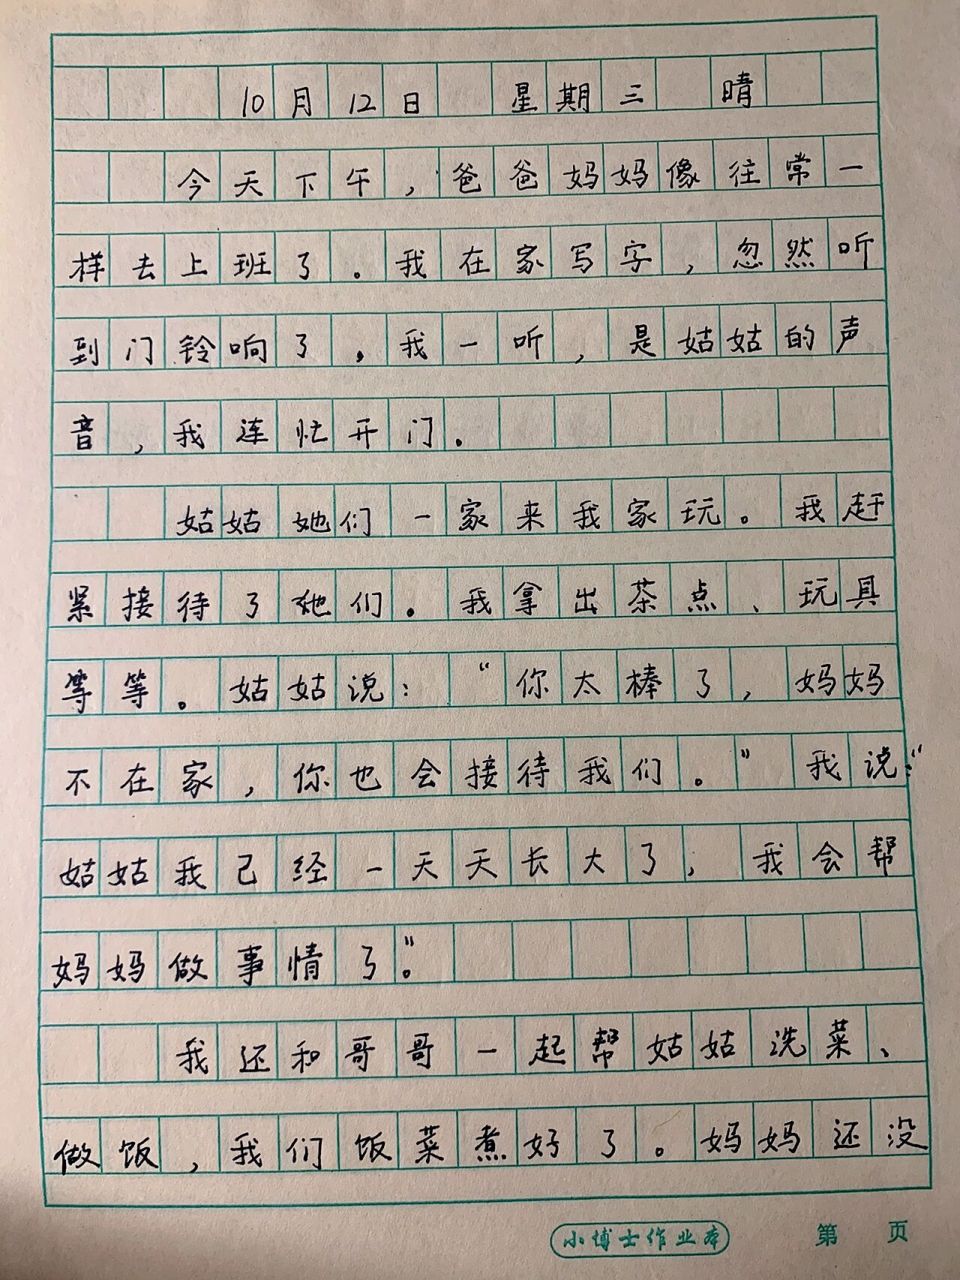 10月12日 星期三 晴
今天下午，爸爸妈妈像往常一
样去上班了。我在家写字，忽然听
到门铃响了，我一听，是姑姑的声
音，我连忙开门。
姑姑她们一家来我家玩。我赶
紧接待了她们。我拿出茶点、玩具
等等。姑姑说：“你太棒了，妈妈
不在家，你也会接待我们。”我说：“
姑姑我己经一天天长大了，我会帮
妈妈做事情了。”
我还和哥哥一起帮姑姑洗菜、
做饭，我们饭菜煮好了。妈妈还没
小博士作业本 第 页